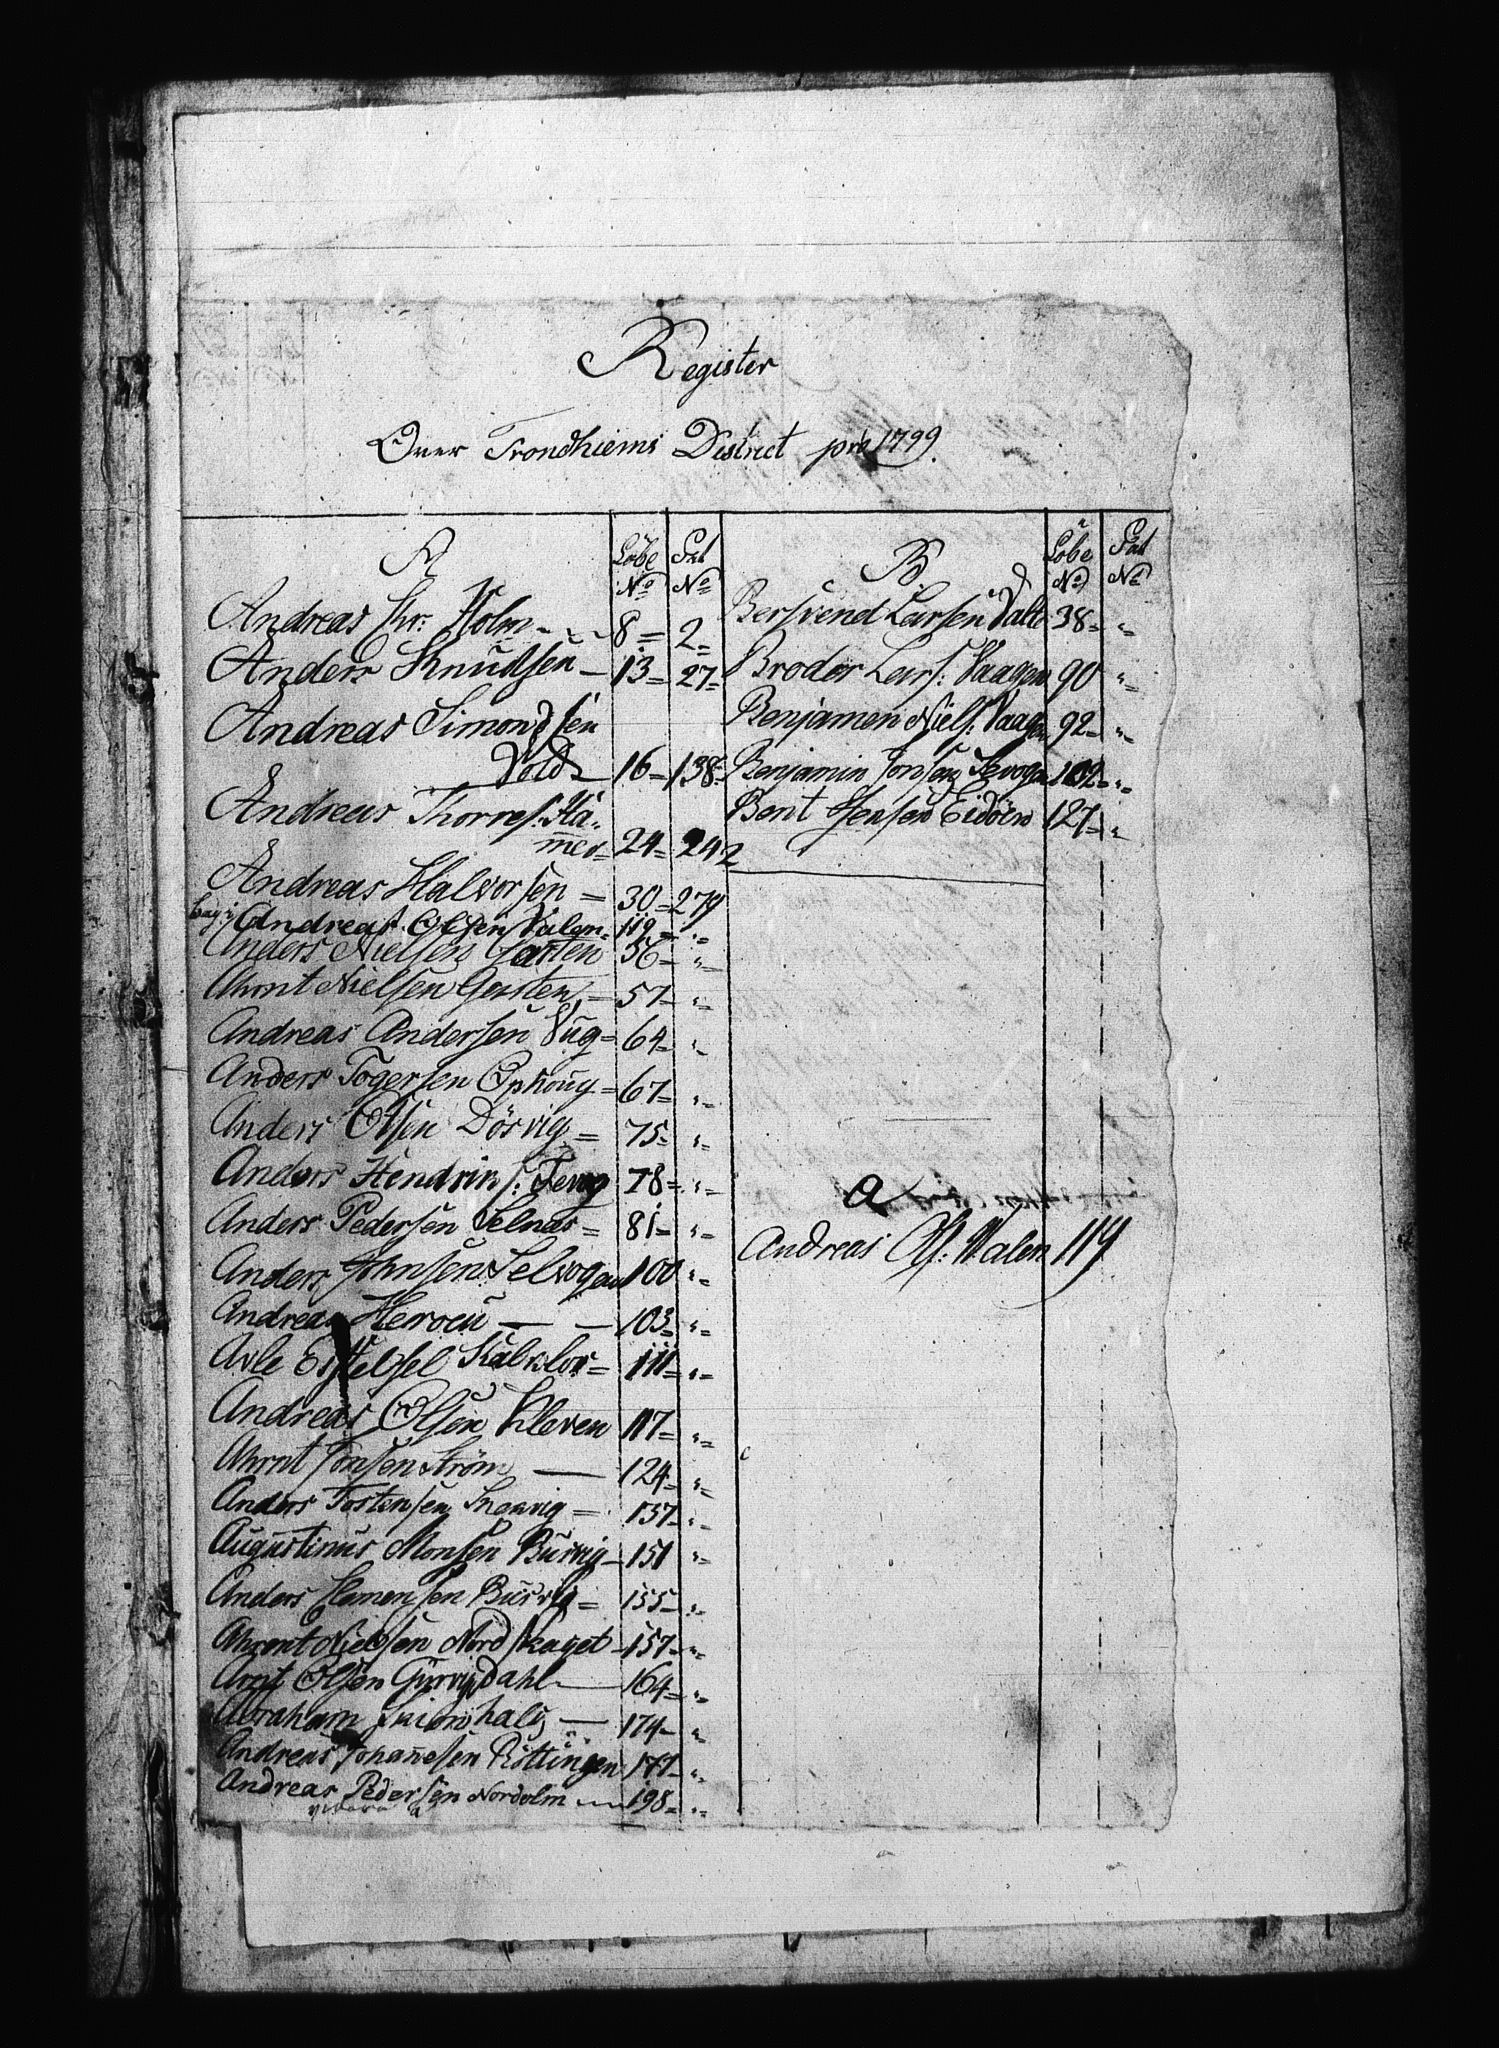 Register
Over Trondhiems District pro 1799.
A Löbe No Pat No
Andreas Chr: Holm 8 = 2 =
Anders Knudsen 13 = 27 =
Andreas Simondsen
Vold 16 = 138 =
Andreas Thorres: Ha-
mer 24 = 242
Andreas Halvorsen = 30 = 279
Andreas Olsen Valen 119 = " =
Anders Nielsen Garten 56 = " =
Ahrnt Nielsen Garten = 57 = " =
Andreas Andersen Vug = 64 = " =
Anders Togersen Ophoug = 67 = " =
Anders Olsen Dörvig = 75 = " =
Anders Hendrik s: Tervig 78 = " =
Anders Pedersen Selnæs = 81 = " =
Anders Johnsen Selvogen 100 " =
Andreas Heroeu 103 = " =
Avle 111 = " =
Andreas Olsen Kleven 117 = " =
Ahrnt Jonsen Ström 124 = " =
Anders Tostensen = 137 = " =
Augustinus Monsen Burvig 151 " =
Anders Clemensen Burvig = 155 = " =
Ahrent Nielsen Nordskaget 157 = " =
Arnt Olsen Gurvigdahl 164 = " =
Abraham Skionhals 174 = "
Andreas Johannesen Röttingen 177 = " =
Andreas Pedersen Nordolm 198 = " =
B Löbe No Pat No
Bersvend Larsen Valto 38 = " =
Broder Lars: Vaagen 90 " =
Benjamen Niels: Vaagen 92 = " =
Benjamin Jonsen Sevogen 102 = " =
Bent Jensen Eidöen 127 = " =
a
Andreas Ols: Walen 119